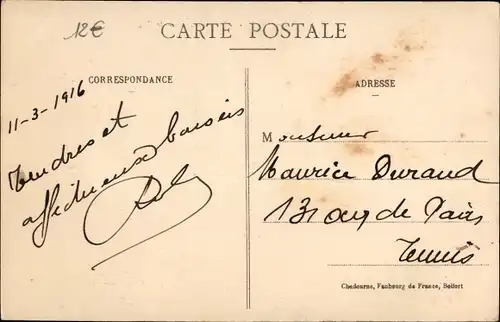 12€
CARTE POSTALE
CORRESPONDANCE
ADRESSE
11-3-1916
Tendres et
affectueux baisers
Monsieur
Maurice Durand
13 de Paris
Tunis
Chadourne, Faubourg de France, Belfort